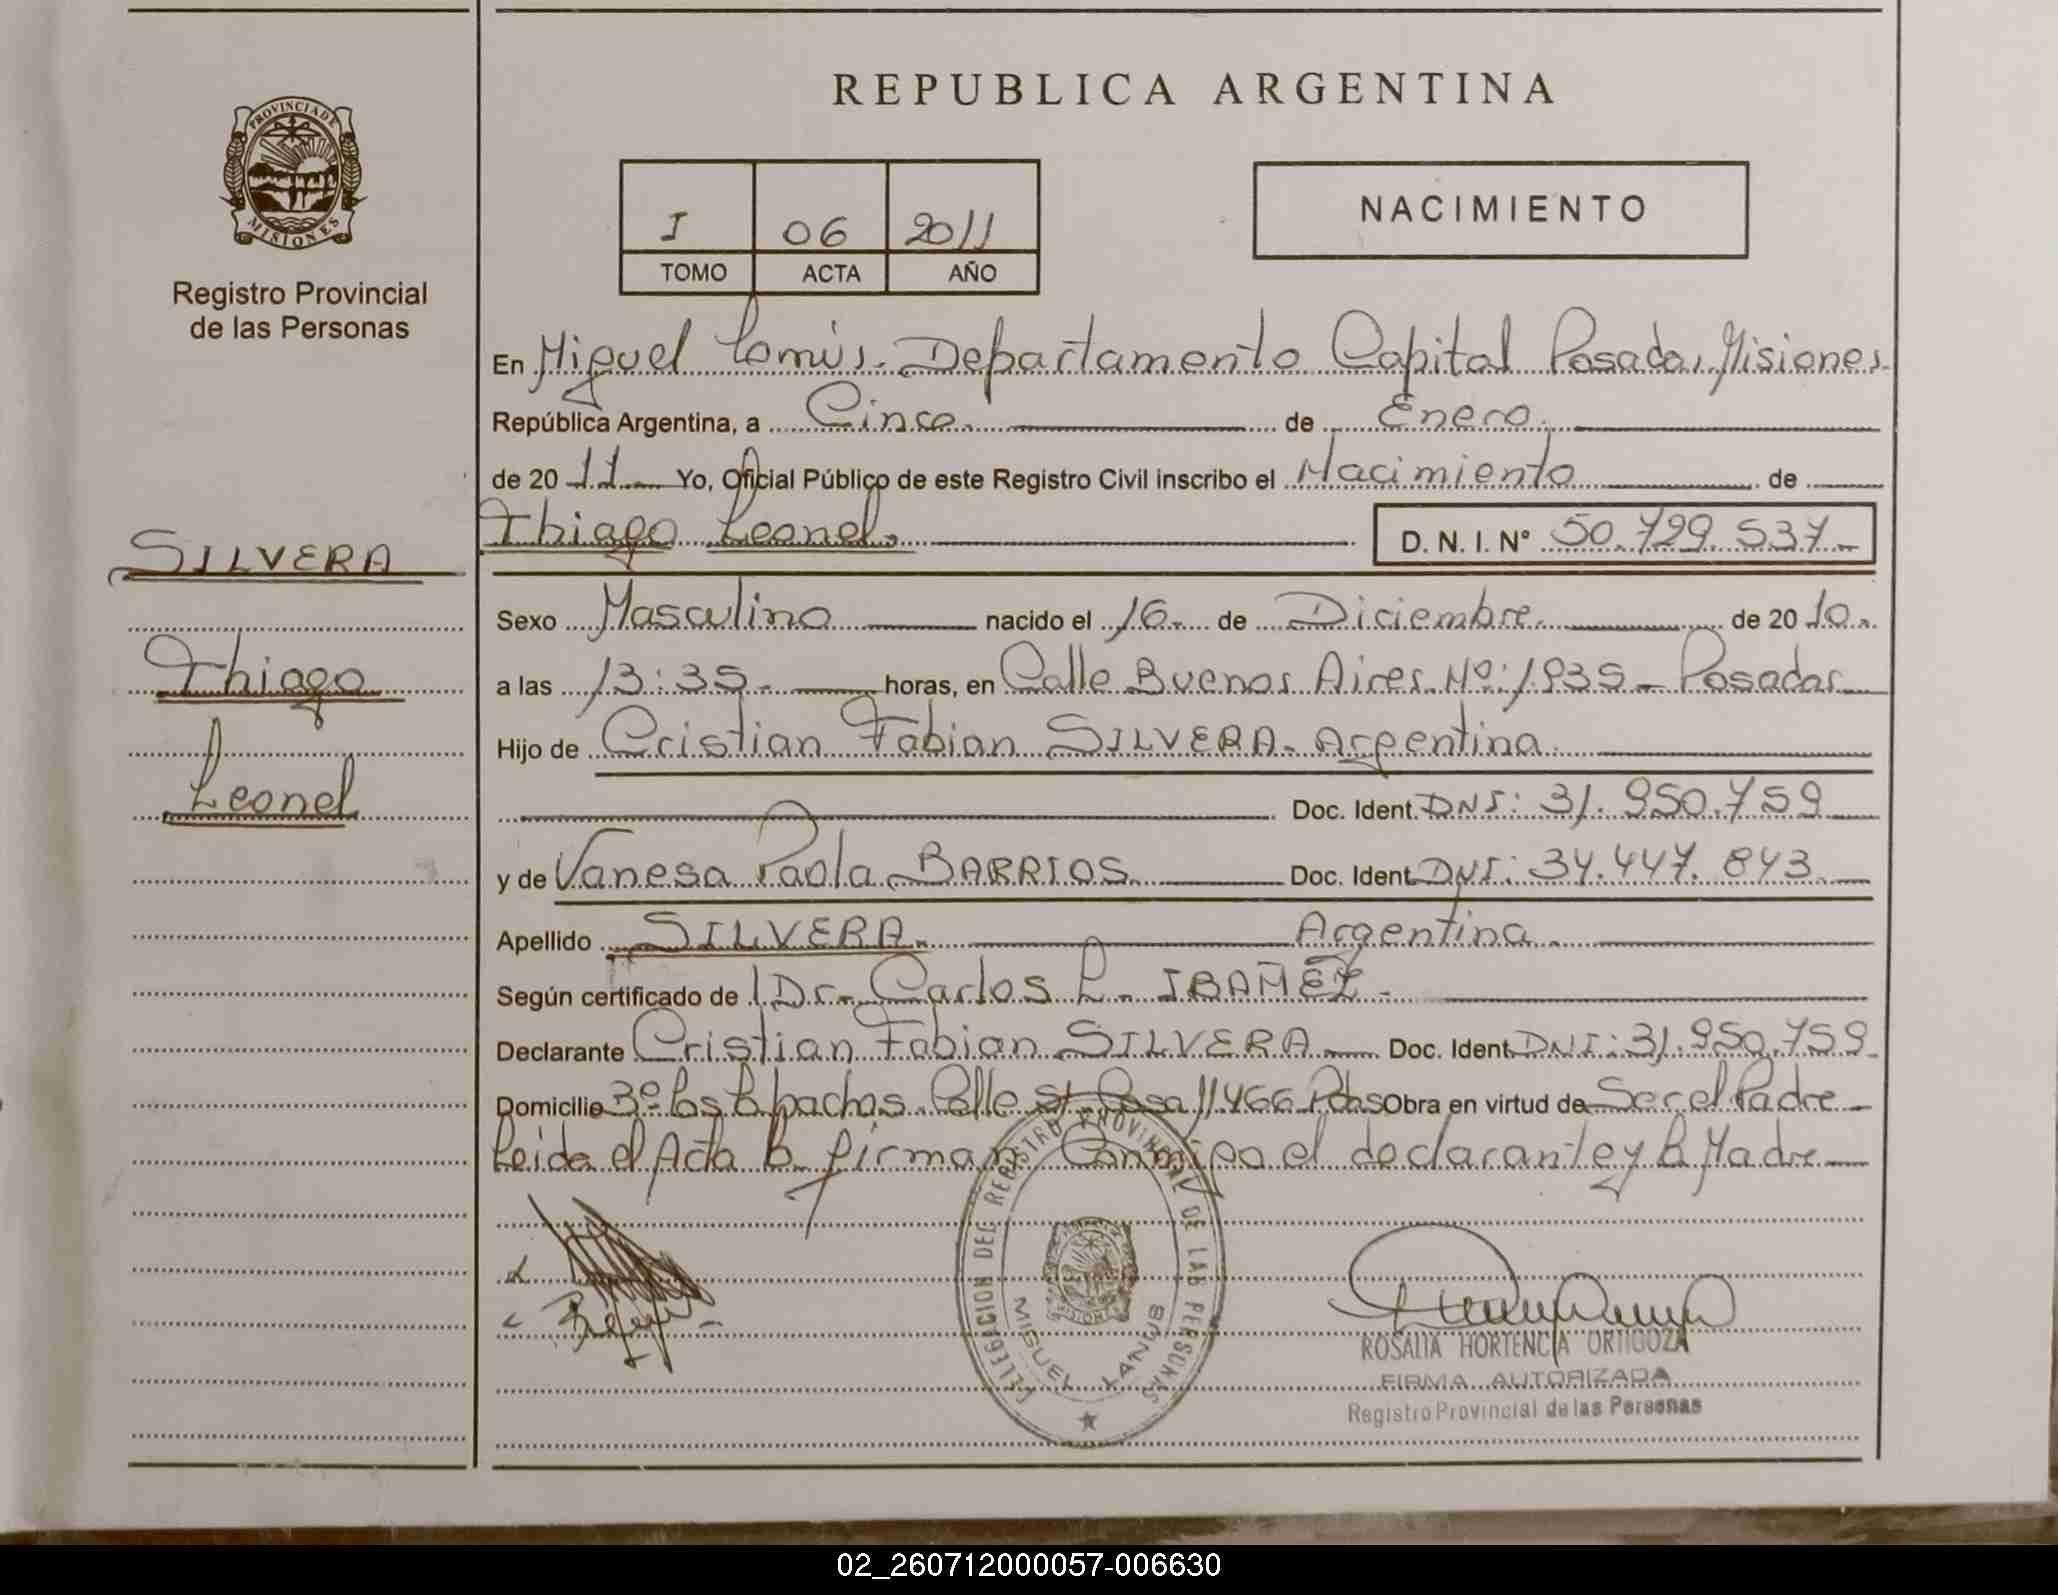 REPUBLICA ARGENTINA
PROVINCIA DE
MISIONES
Registro Provincial
de las Personas
I 06 2011
TOMO ACTA AÑO
NACIMIENTO
En Miguel Lanús. Departamento Capital Posadas, Misiones
República Argentina, a Cinco. de Enero.
de 20 11 Yo, Oficial Público de este Registro Civil inscribo el Nacimiento de
Thiago Leonel. D. N. I. N° 50.729.537-
SILVERA
Thiago
Leonel
Sexo Masculino nacido el 16. de Diciembre. de 20 10.
a las 13:35. horas, en Calle Buenos Aires Nº: 1935 - Posadas
Hijo de Cristian Fabian SILVERA. Argentina
Doc. Ident. DNI: 31.950.759
y de Vanesa Paola BARRIOS Doc. Ident. DNI: 34.447.843.
Apellido SILVERA. Argentina.
Según certificado de Dr. Carlos L. IBAÑEZ.
Declarante Cristian Fabian SILVERA Doc. Ident. DNI: 31.950.759.
Domicilio 3º Los Lapachos. Calle Casa 11466 Pdas Obra en virtud de Ser el Padre
Leida el Acta la firman Conmigo el declarante y la Madre
DELEGACION DEL REGISTRO PROVINCIAL DE LAS PERSONAS
MIGUEL LANUS
ROSALIA HORTENCIA ORTIGOZA
FIRMA AUTORIZADA
Registro Provincial de las Personas
02_260712000057-006630